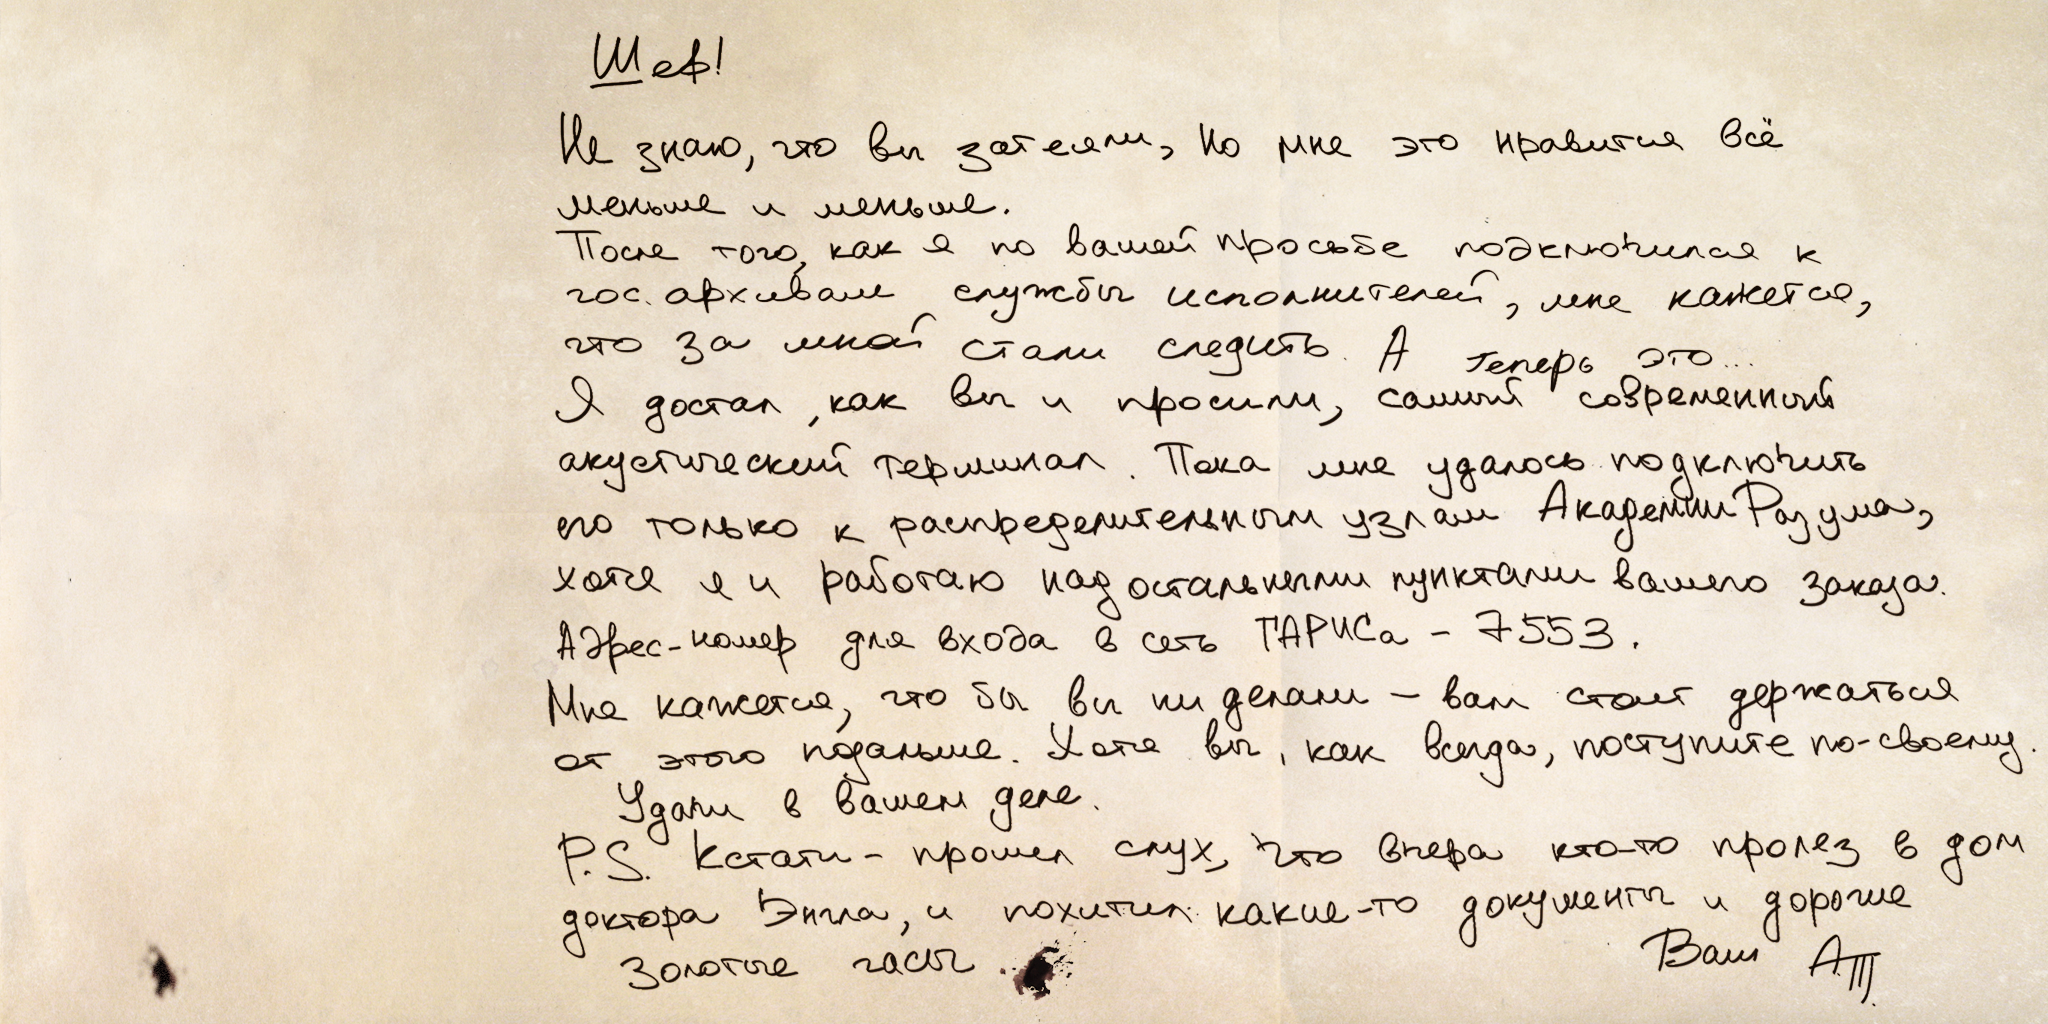 Шеф!
Не знаю, что вы затеяли, но мне это нравится всё
меньше и меньше.
После того, как я по вашей просьбе подключился к
гос. архивам службы исполнителей, мне кажется,
что за мной стали следить. А теперь это...
Я достал, как вы и просили, самый современный
акустический терминал. Пока мне удалось подключить
его только к распределительным узлам Академии Разума,
хотя я и работаю над остальными пунктами вашего заказа.
Адрес-номер для входа в сеть ТАРИСа - 7553.
Мне кажется, что бы вы ни делали - вам стоит держаться
от этого подальше. Хотя вы, как всегда, поступите по-своему.
Удачи в вашем деле.
P.S. Кстати - прошел слух, что вчера кто-то пролез в дом
доктора Энгла, и похитил какие-то документы и дорогие
золотые часы
Ваш А.Т.